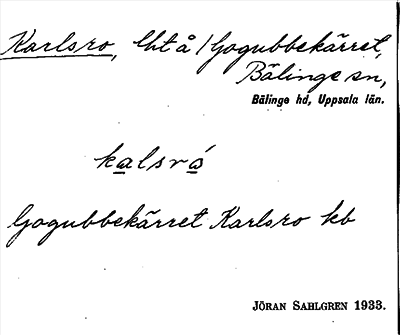 Karlsro, lht å / Gogubbekärret,
Bälinge sn,
Bälinge hd, Uppsala län.
kalsró
Gogubbekärret Karlsro kb
JÖRAN SAHLGREN 1933.